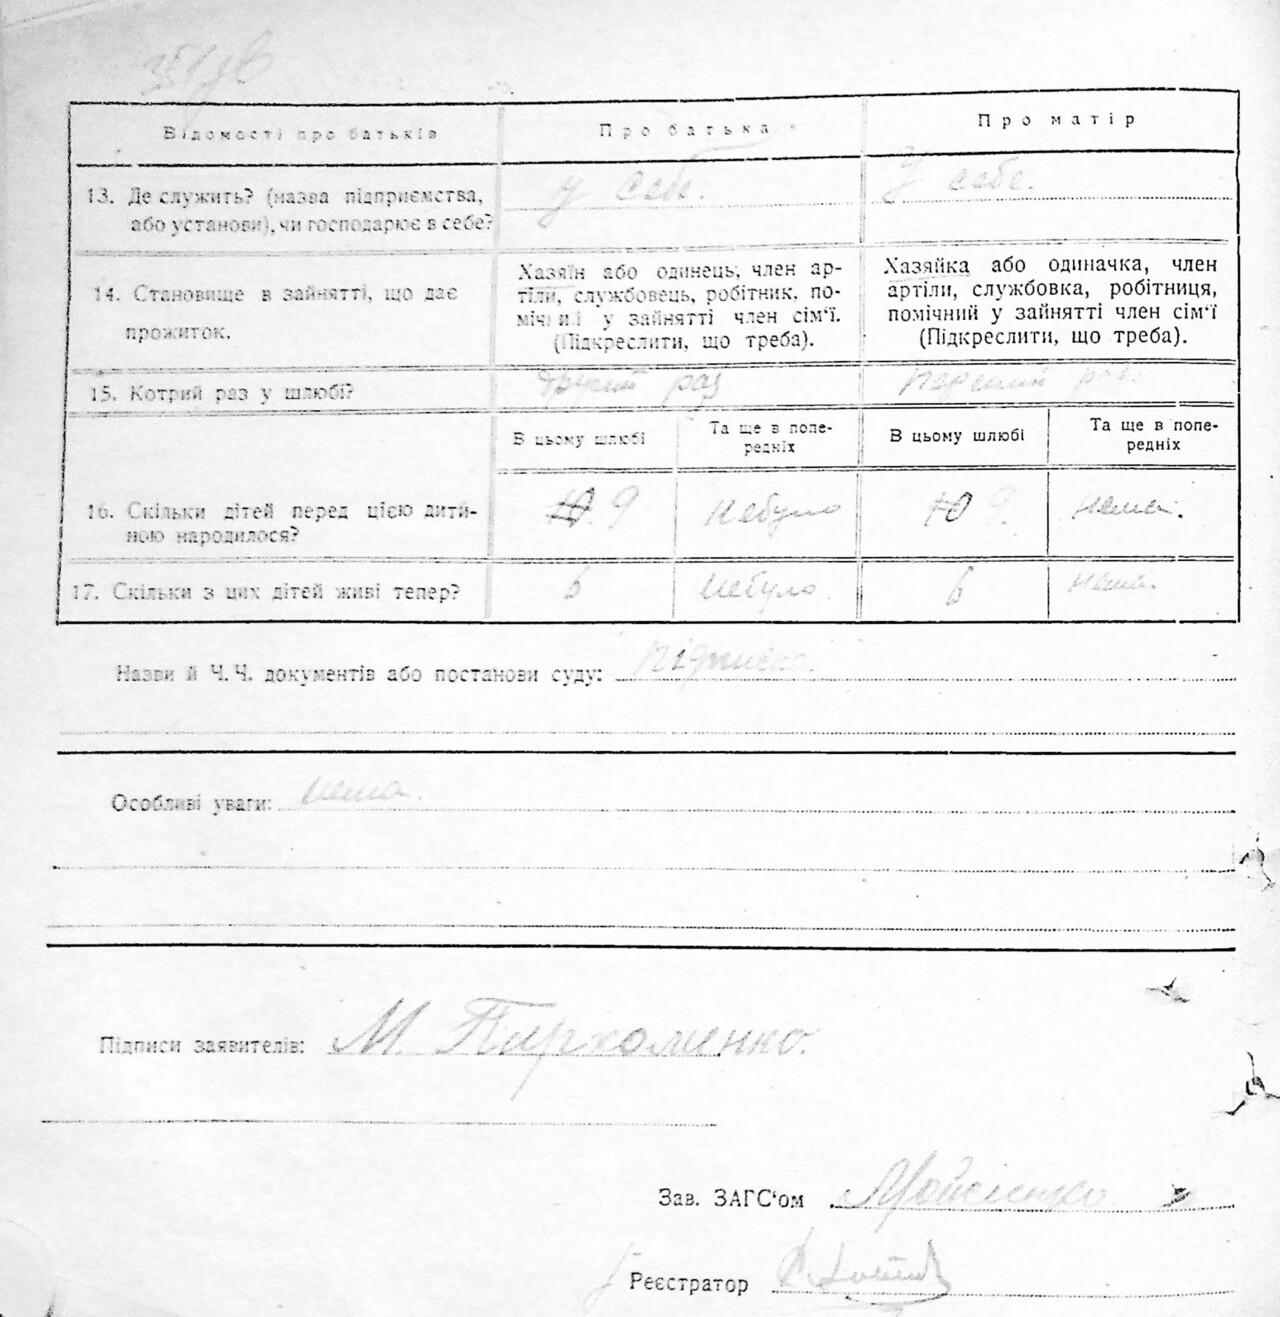 Відомості про батьків
Про батька
Про матір
13. Де служить? (назва підприємства,
або установи), чи господарює в себе?
у себе.
У себе.
14. Становище в зайнятті, що дає
прожиток.
Хазяїн або одинець, член ар-
тіли, службовець, робітник, по-
мічний у зайнятті член сім'ї.
(Підкреслити, що треба).
Хазяйка або одиначка, член
артіли, службовка, робітниця,
помічний у зайнятті член сім'ї
(Підкреслити, що треба).
15. Котрий раз у шлюбі?
другий раз
перший раз.
В цьому шлюбі
Та ще в попе-
редніх
В цьому шлюбі
Та ще в попе-
редніх
16. Скільки дітей перед цією дити-
ною народилося?
10. 9
небуло
10 9.
нема.
17. Скільки з цих дітей живі тепер?
6
небуло.
6
нема.
Назви й Ч. Ч. документів або постанови суду: підписка.
Особливі уваги: нема.
Підписи заявителів: М. Пархоменко.
Зав. ЗАГС'ом Мойсієнко
Реєстратор